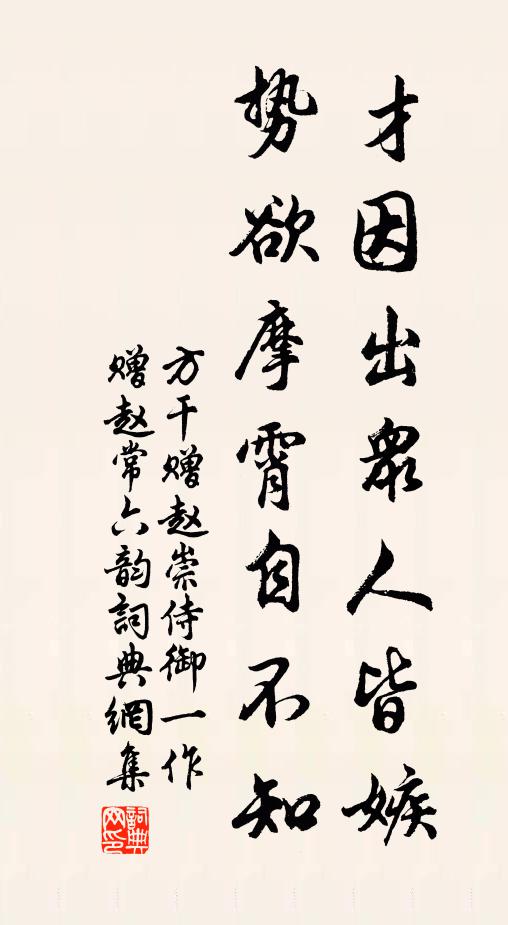 才因出衆人皆嫉
势欲摩霄自不知
方干赠赵崇侍御一作
赠赵常六韵詞典網集
詞典
网印